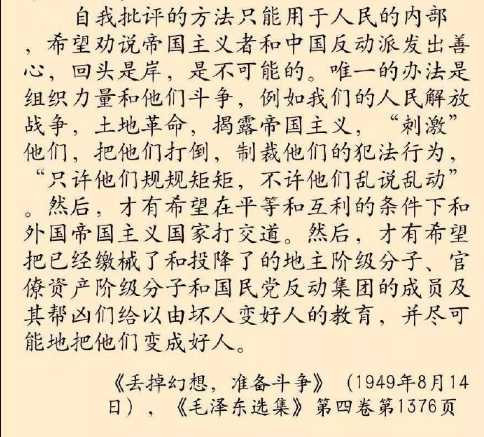 自我批评的方法只能用于人民的内部
，希望劝说帝国主义者和中国反动派发出善
心，回头是岸，是不可能的。唯一的办法是
组织力量和他们斗争，例如我们的人民解放
战争，土地革命，揭露帝国主义，“刺激”
他们，把他们打倒，制裁他们的犯法行为，
“只许他们规规矩矩，不许他们乱说乱动”
。然后，才有希望在平等和互利的条件下和
外国帝国主义国家打交道。然后，才有希望
把已经缴械了和投降了的地主阶级分子、官
僚资产阶级分子和国民党反动集团的成员及
其帮凶们给以由坏人变好人的教育，并尽可
能地把他们变成好人。
《丢掉幻想，准备斗争》（1949年8月14
日），《毛泽东选集》第四卷第1376页